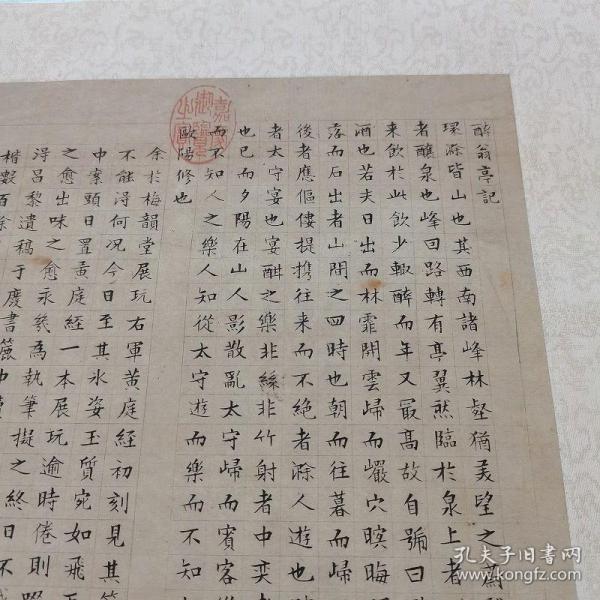 醉翁亭記
環滁皆山也其西南諸峰林壑猶美望之
者釀泉也峰回路轉有亭翼然臨於泉上者
来飲於此飲少輒醉而年又最髙故自號曰
酒也若夫日出而林霏開雲歸而巖穴暝晦
落而石出者山間之四時也朝而往暮而歸
後者應傴僂提携往来而不絶者滁人遊也
者太守宴也宴酣之樂非絲非竹射者中奕
也已而夕陽在山人影散亂太守歸而賓客
而不知人之樂人知從太守遊而樂而不知
歐陽修也
余於梅韻堂展玩右軍黄庭経初刻見其
不能得何况今日至其氷姿玉質宛如飛
中案頭日置黄庭經一本展玩逾時倦則
之愈出味之愈永㡬為執筆擬之終日不
淂呂黎遺稿于慶書篋中
楷數百
嘉慶御覽之寳
孔夫子旧书网
www.kongfz.com